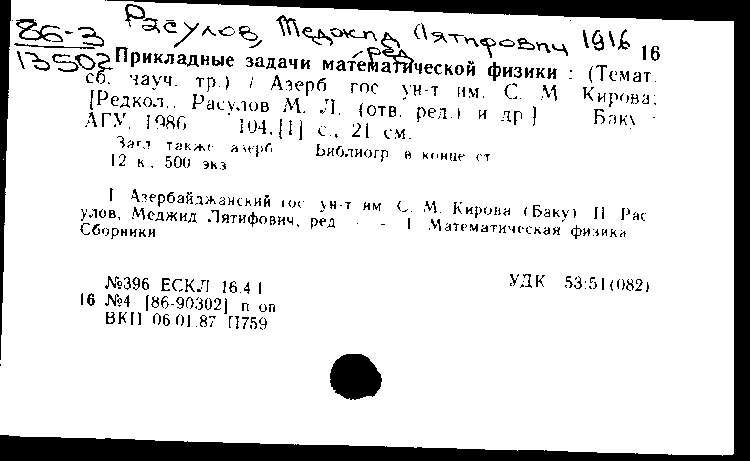 86-3
13502
Расулов, Меджид Лятифович 1916
ред.
16
Прикладные задачи математической физики : (Темат.
сб. науч. тр.) / Азерб. гос. ун-т им. С. М. Кирова;
[Редкол.: Расулов М. Л. (отв. ред.) и др.] Баку :
АГУ, 1986 104,[1] с., 21 см.
Загл. также азерб. Библиогр. в конце ст.
12 к., 500 экз.
I. Азербайджанский гос. ун-т им. С. М. Кирова (Баку) II. Рас
улов, Меджид Лятифович, ред. - - 1. Математическая физика
Сборники
№396 ЕСКЛ 16.4.1 УДК 53:51(082)
16 №4 [86-90302] п оп
ВКП 06.01.87 П759